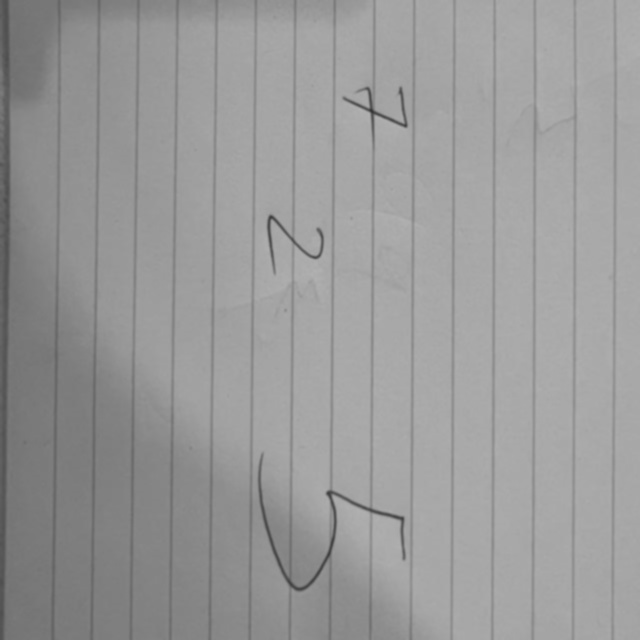 7 2 5